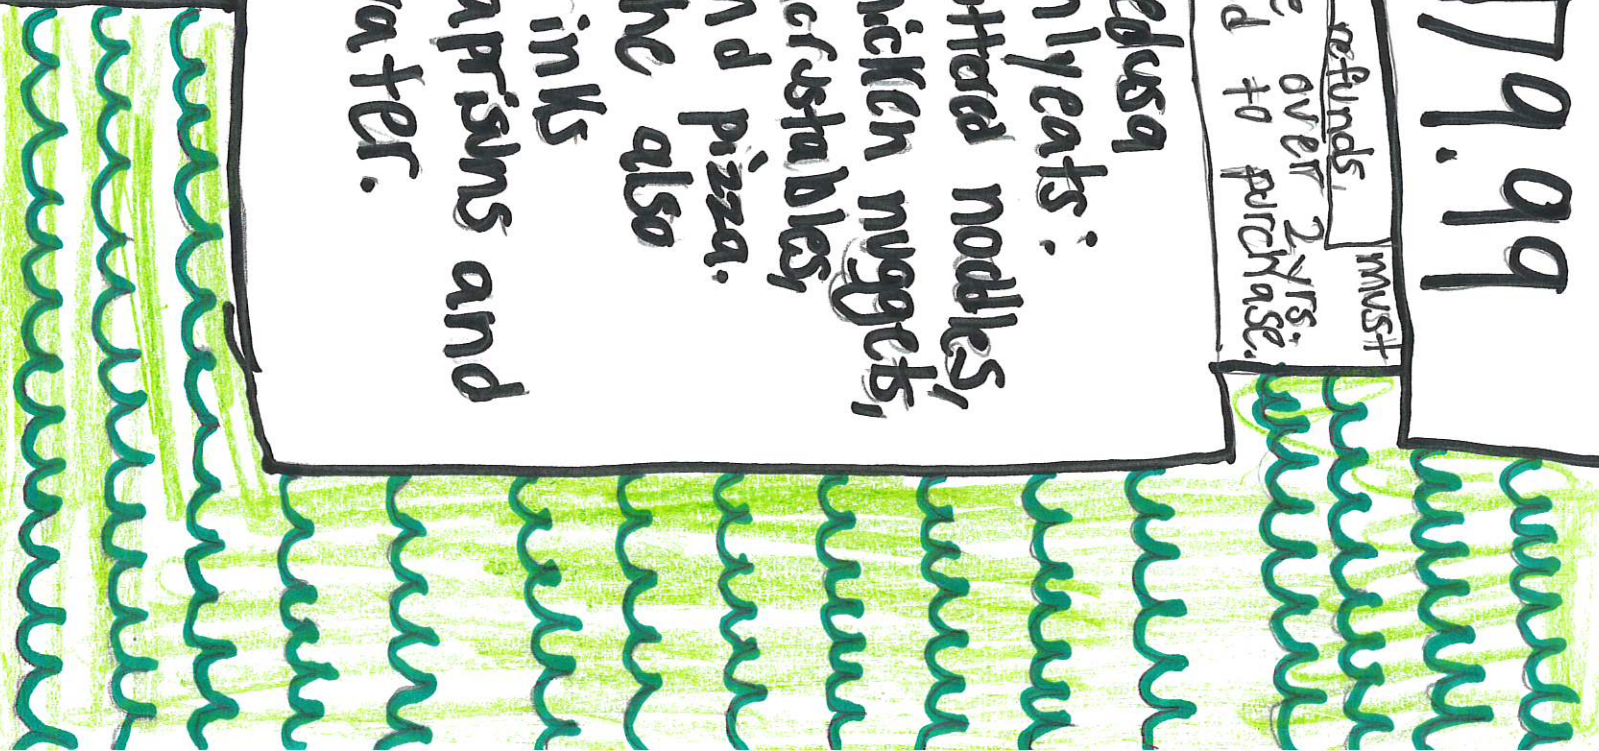 79.99
refunds. must
e over 2 yrs.
d to purchase.
edusa
nly eats:
ttered noodles,
hicken nuggets,
crustables,
nd pizza.
he also
inks
aprisuns and
ater.